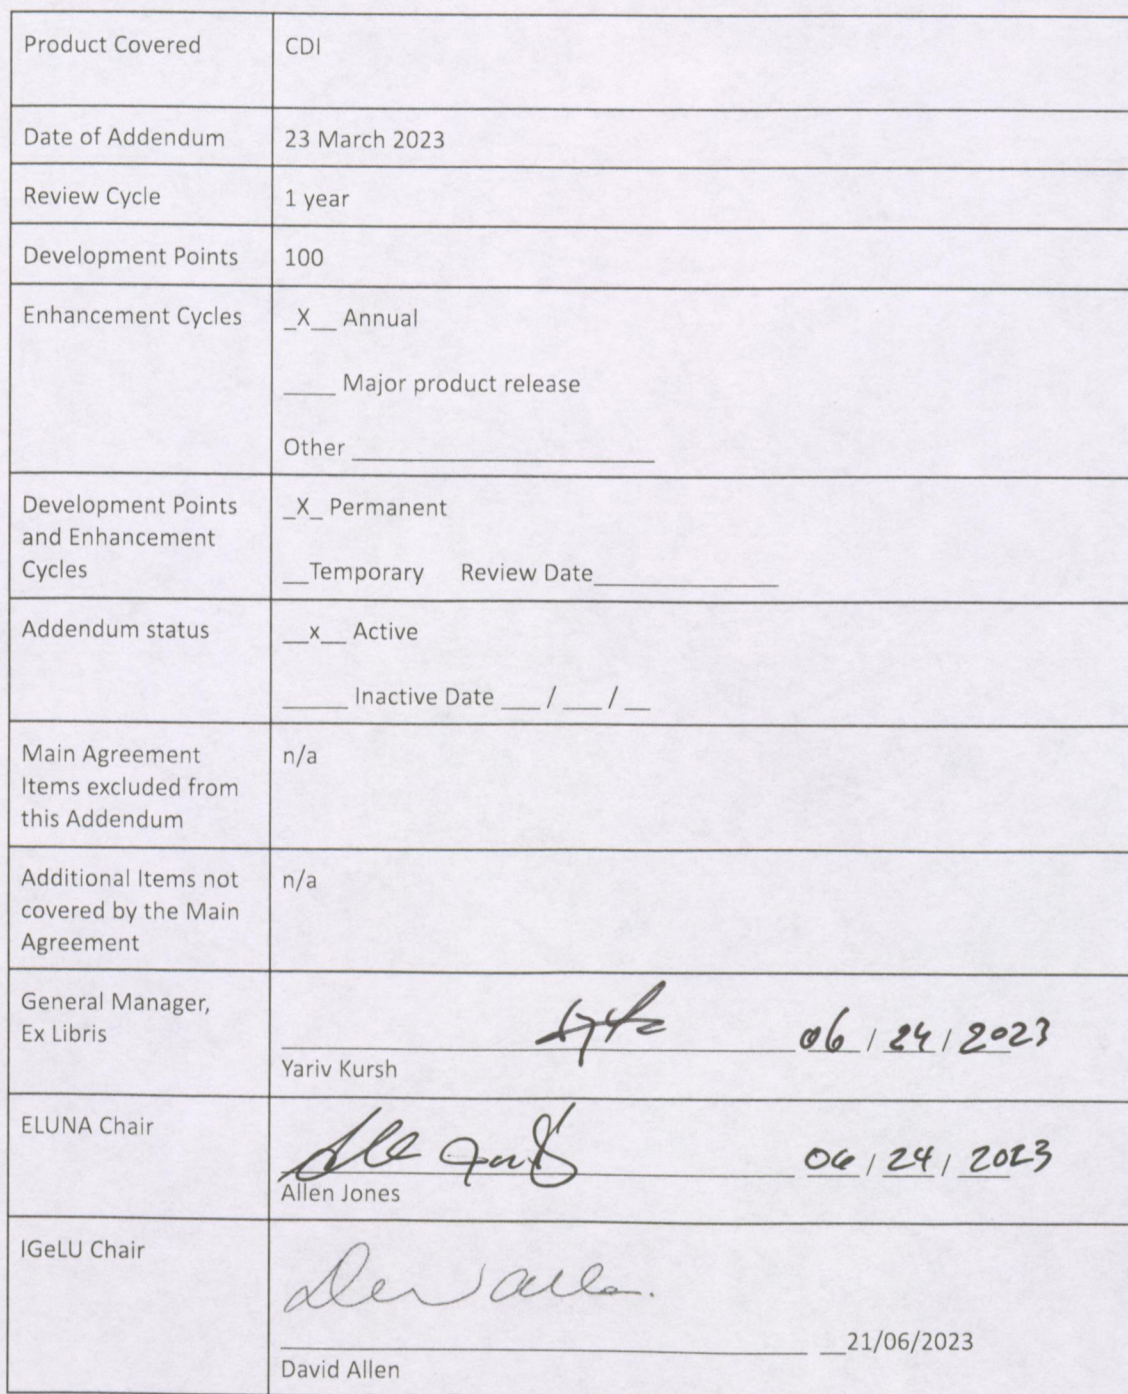 Product Covered
CDI
Date of Addendum
23 March 2023
Review Cycle
1 year
Development Points
100
Enhancement Cycles
_X__ Annual
____ Major product release
Other ______________________
Development Points
and Enhancement
Cycles
_X_ Permanent
__Temporary Review Date______________
Addendum status
__x__ Active
_____ Inactive Date ___ / ___ / __
Main Agreement
Items excluded from
this Addendum
n/a
Additional Items not
covered by the Main
Agreement
n/a
General Manager,
Ex Libris
06 / 24 / 2023
Yariv Kursh
ELUNA Chair
06 / 24 / 2023
Allen Jones
IGeLU Chair
__21/06/2023
David Allen